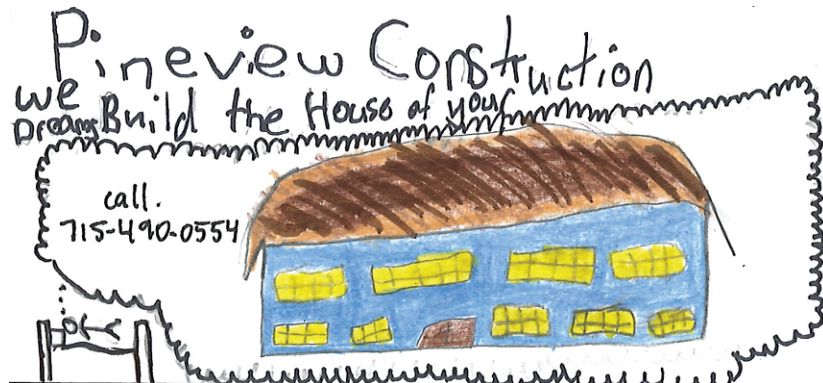 Pineview Construction
We Build the House of your
Dreams
call.
715-490-0554